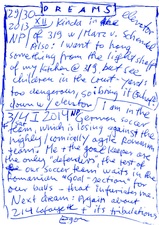 DREAMS
29/30 XII Kinda in the Elevator
2013 NP of 319 w/ Marc v. Schmedel
Also: I want to hang
something from the light shaft
of my father @ 319 but see
children in the court-yard:
too dangerous, so bring it (back)
down w/ elevator I am in the
3/4 I 2014 NO German soccer
team, which is losing against the
highly, comically agile Romanian
team. Me + the goalkeeper are
the only "defenders", the rest of
our soccer team waits in the
Romanian "Goal-section" for
our balls - that infuriates me.
Next dream: Again about
2114 Lafayette + its tribulations
Egon